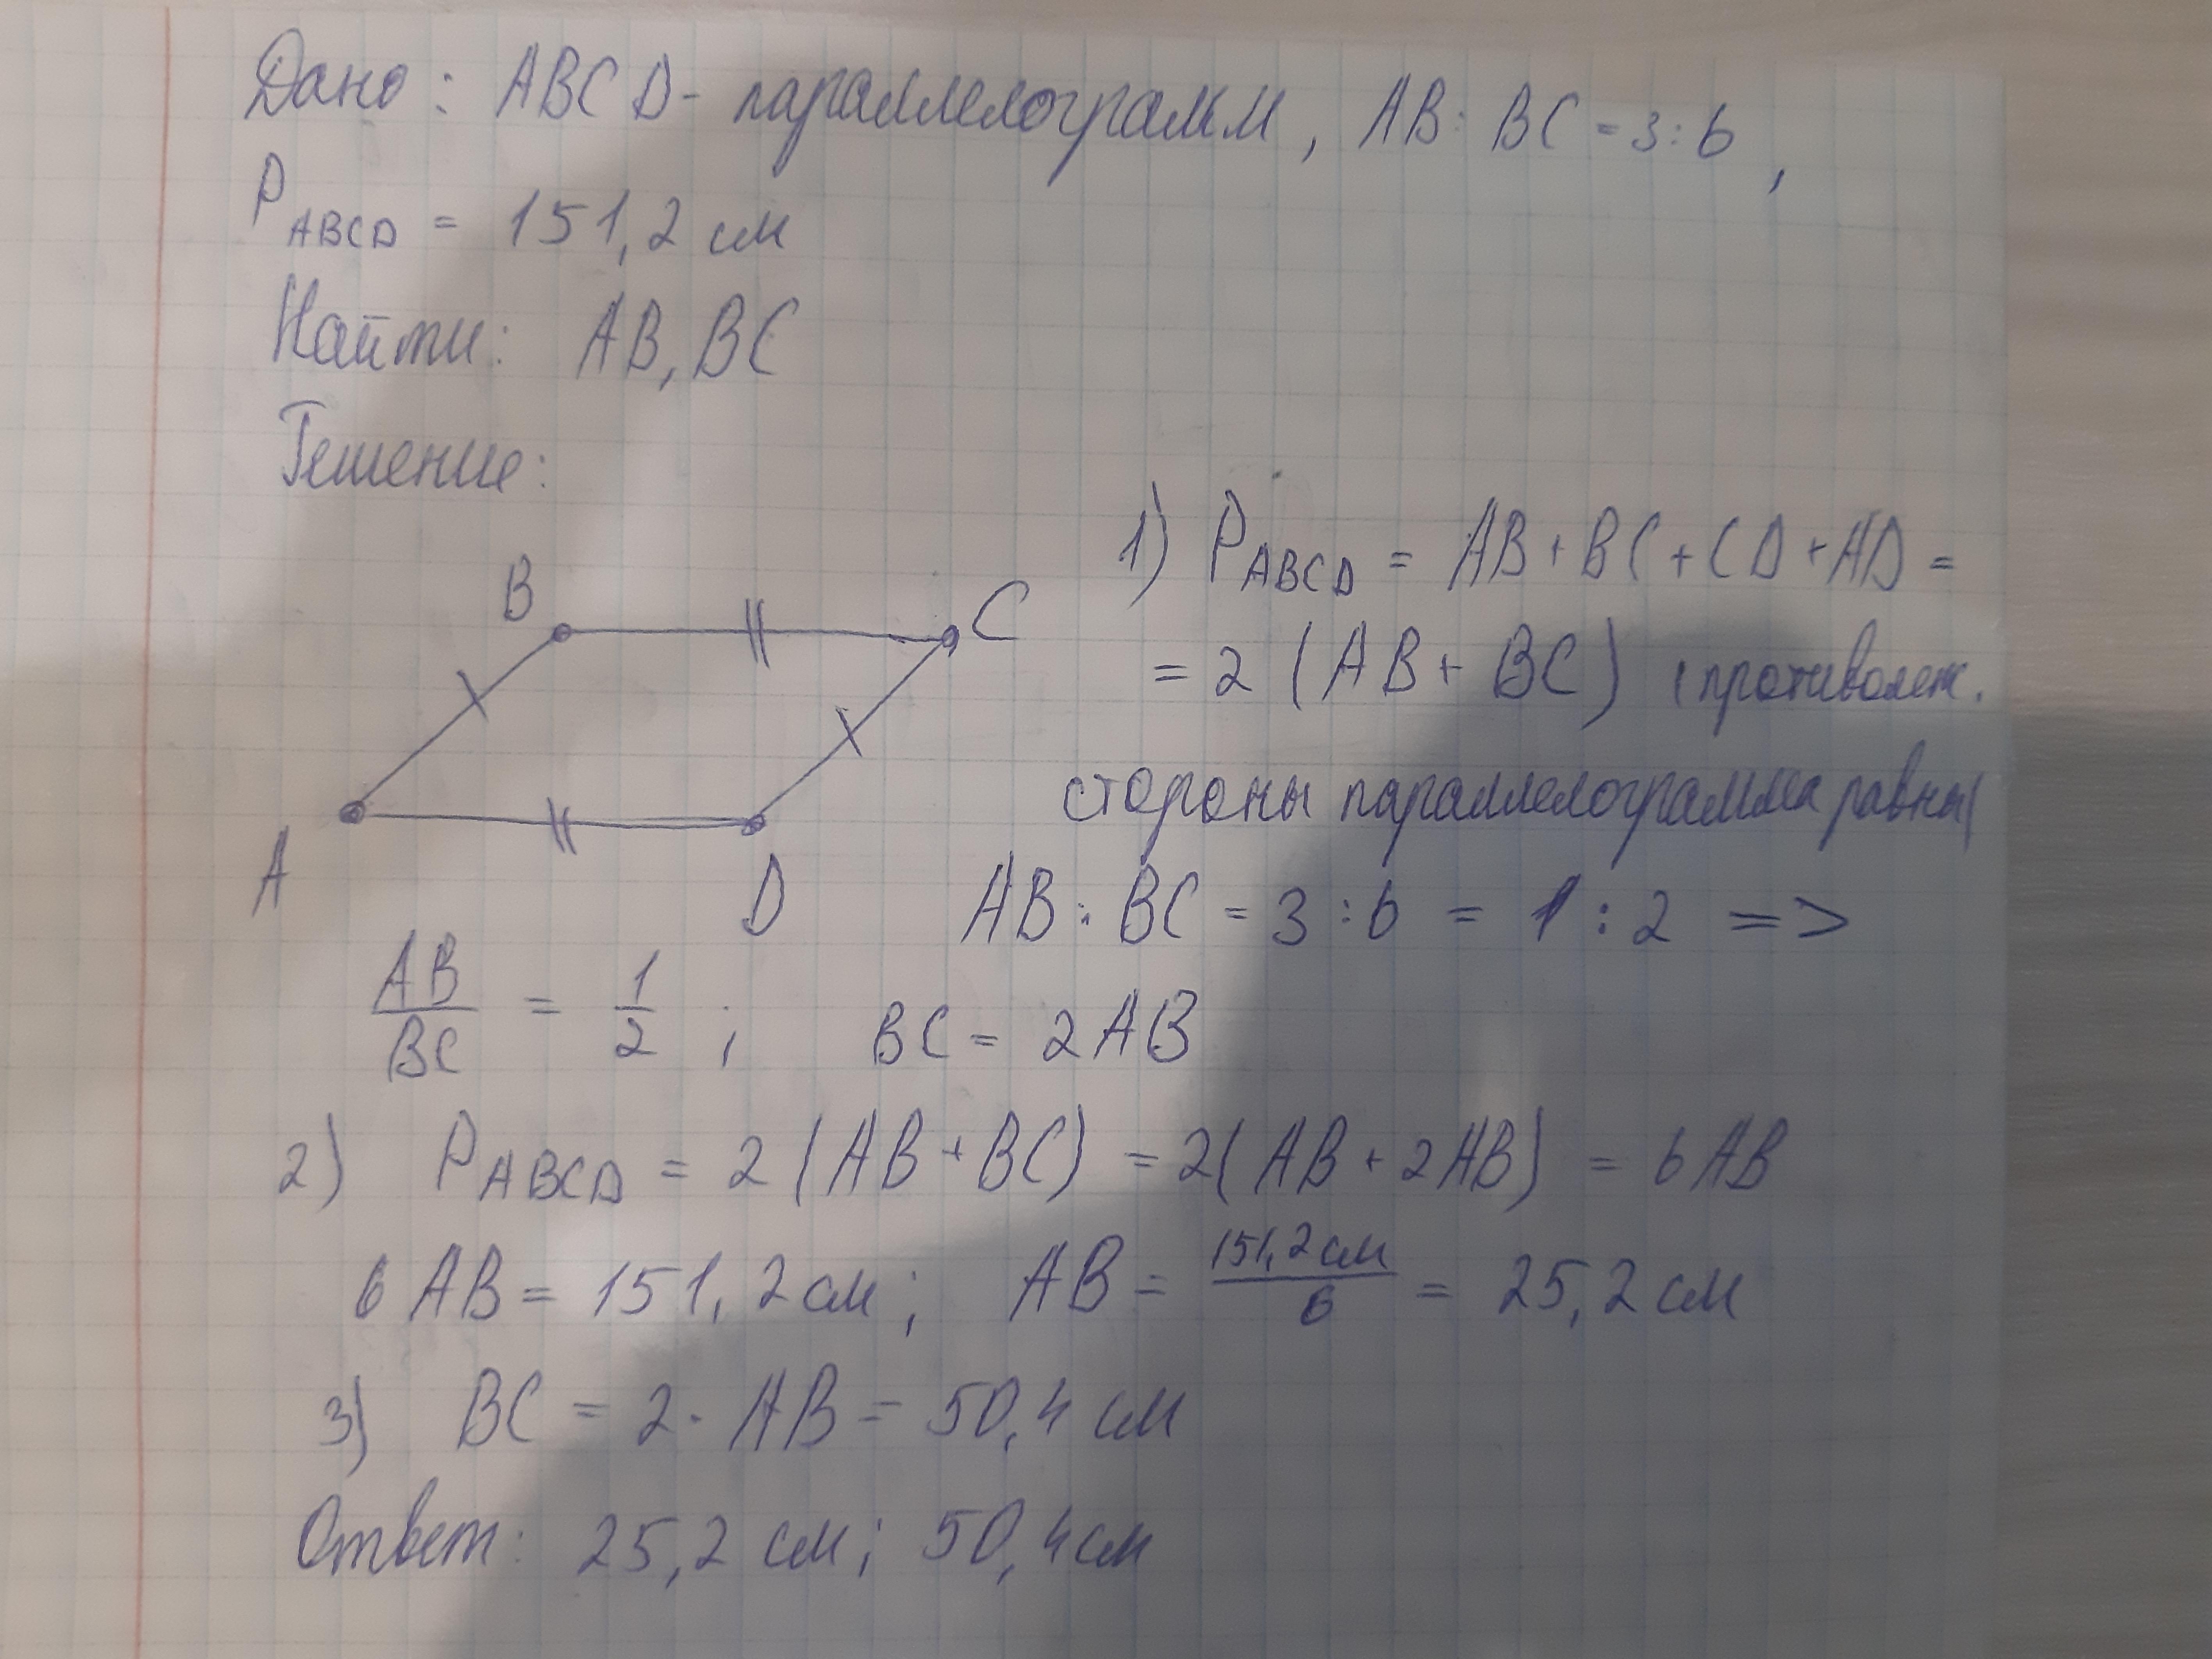 Дано: ABCD - параллелограмм, AB : BC = 3 : 6,
P ABCD = 151,2 см
Найти: AB, BC
Решение:
1) P ABCD = AB + BC + CD + AD =
= 2 (AB + BC) (противолеж.
стороны параллелограмма равны)
B
C
A
D
AB : BC = 3 : 6 = 1 : 2 =>
AB/BC = 1/2 ; BC = 2AB
2) P ABCD = 2 (AB + BC) = 2(AB + 2AB) = 6AB
6AB = 151,2 см; AB = 151,2 см/6 = 25,2 см
3) BC = 2 · AB = 50,4 см
Ответ: 25,2 см; 50,4 см